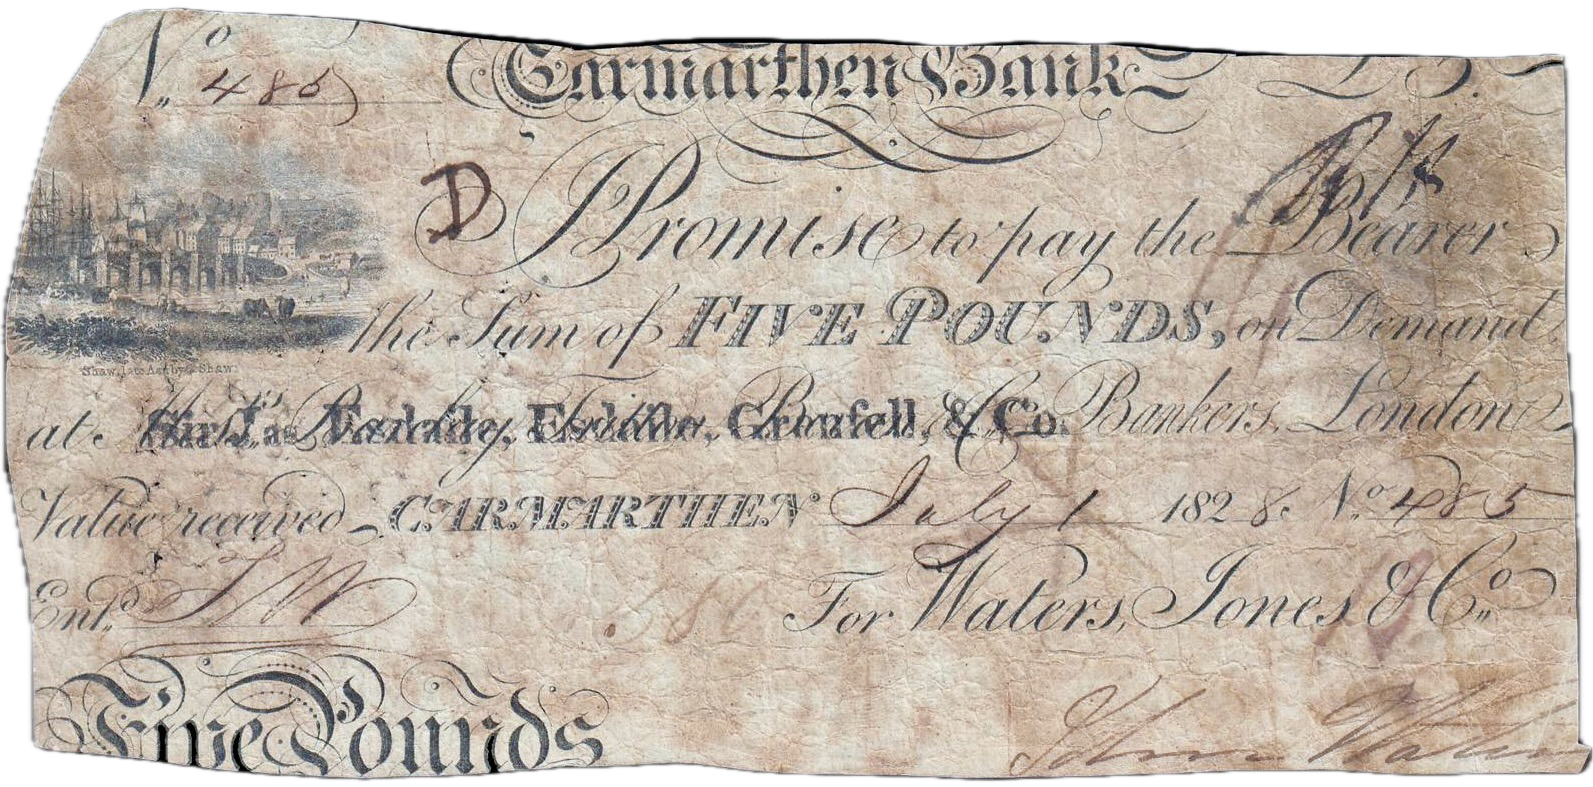 No. 485 Carmarthen Bank £5.
D I Promise to pay the Bearer
the Sum of FIVE POUNDS, on Demand
Shaw, late Ashby & Shaw.
at Sir Jas. Esdaile, Esdaile, Grenfell, & Co. Bankers, London
Value received CARMARTHEN July 1 1828. No. 485
Entd. For Waters, Jones & Co.
Five Pounds John Waters